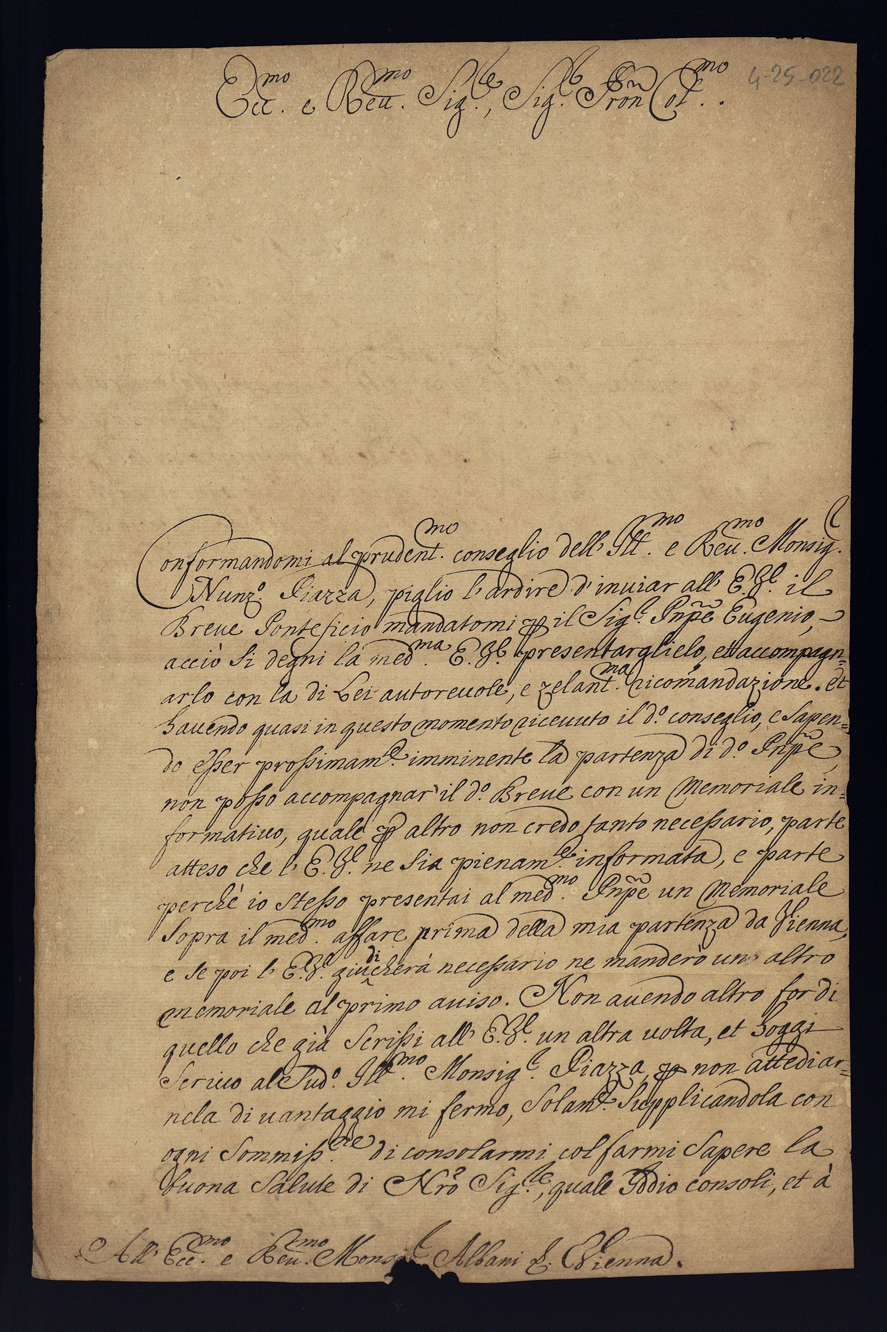 4-25-022
Ecc.mo e Reu.mo Sig.le, Sig.le Pron Col.mo.
Conformandomi al prudent.mo conseglio dell' Ill.mo e Reu.mo Monsig.e
Nunz.o Piazza, piglio l'ardire d'inuiar all' E.V. il
Breue Ponteficio mandatomi p il Sig.e Pnpe Eugenio,
acciò si degni la med.ma E.V. presentarglielo, et accompagn=
arlo con la di Lei autoreuole, e zelant.ma ricomandazione. et
hauendo quasi in questo momento riceuuto il d.o conseglio, e sapen=
do esser prossimam.e imminente la partenza di d.o Pnpe,
non posso accompagnar' il d.o Breue con un Memoriale in=
formatiuo, quale p altro non credo tanto necessario, parte
atteso che l'E.V. ne sia pienam.e informata, e parte
perchè io stesso presentai al med.mo Pnpe un Memoriale
sopra il med.mo affare prima della mia partenza da Vienna,
e se poi l'E.V. giudicherà necessario ne manderò un' altro
memoriale al primo auiso. Non auendo altro for di
quello che già scrissi all' E.V. un altra uolta, et hoggi
scriuo al sud.o Ill.mo Monsig.e Piazza, p non attediar=
nela di uantaggio mi fermo, solam.e supplicandola con
ogni sommiss.ne di consolarmi col farmi sapere la
buona salute di Nro Sig.le, quale Iddio consoli, et à
All' Ecc.mo e Reu.mo Monsig.e Albani Vienna.